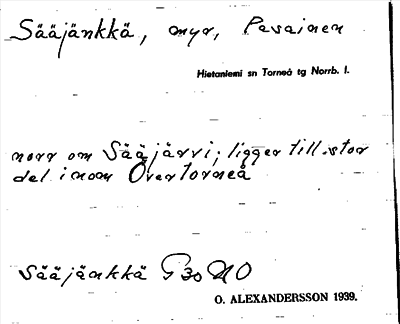 Sääjänkkä, myr, Pesainen
Hietaniemi sn Torneå tg Norrb. l.
norr om Sääjärvi; ligger till stor
del inom Övertorneå
Sääjänkkä G30 NO
O. ALEXANDERSSON 1939.